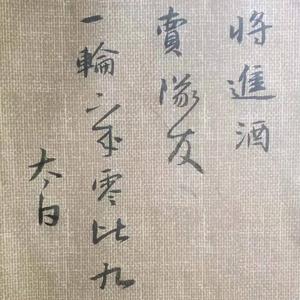 將進酒
賣隊友
一輪二年零比九
太白